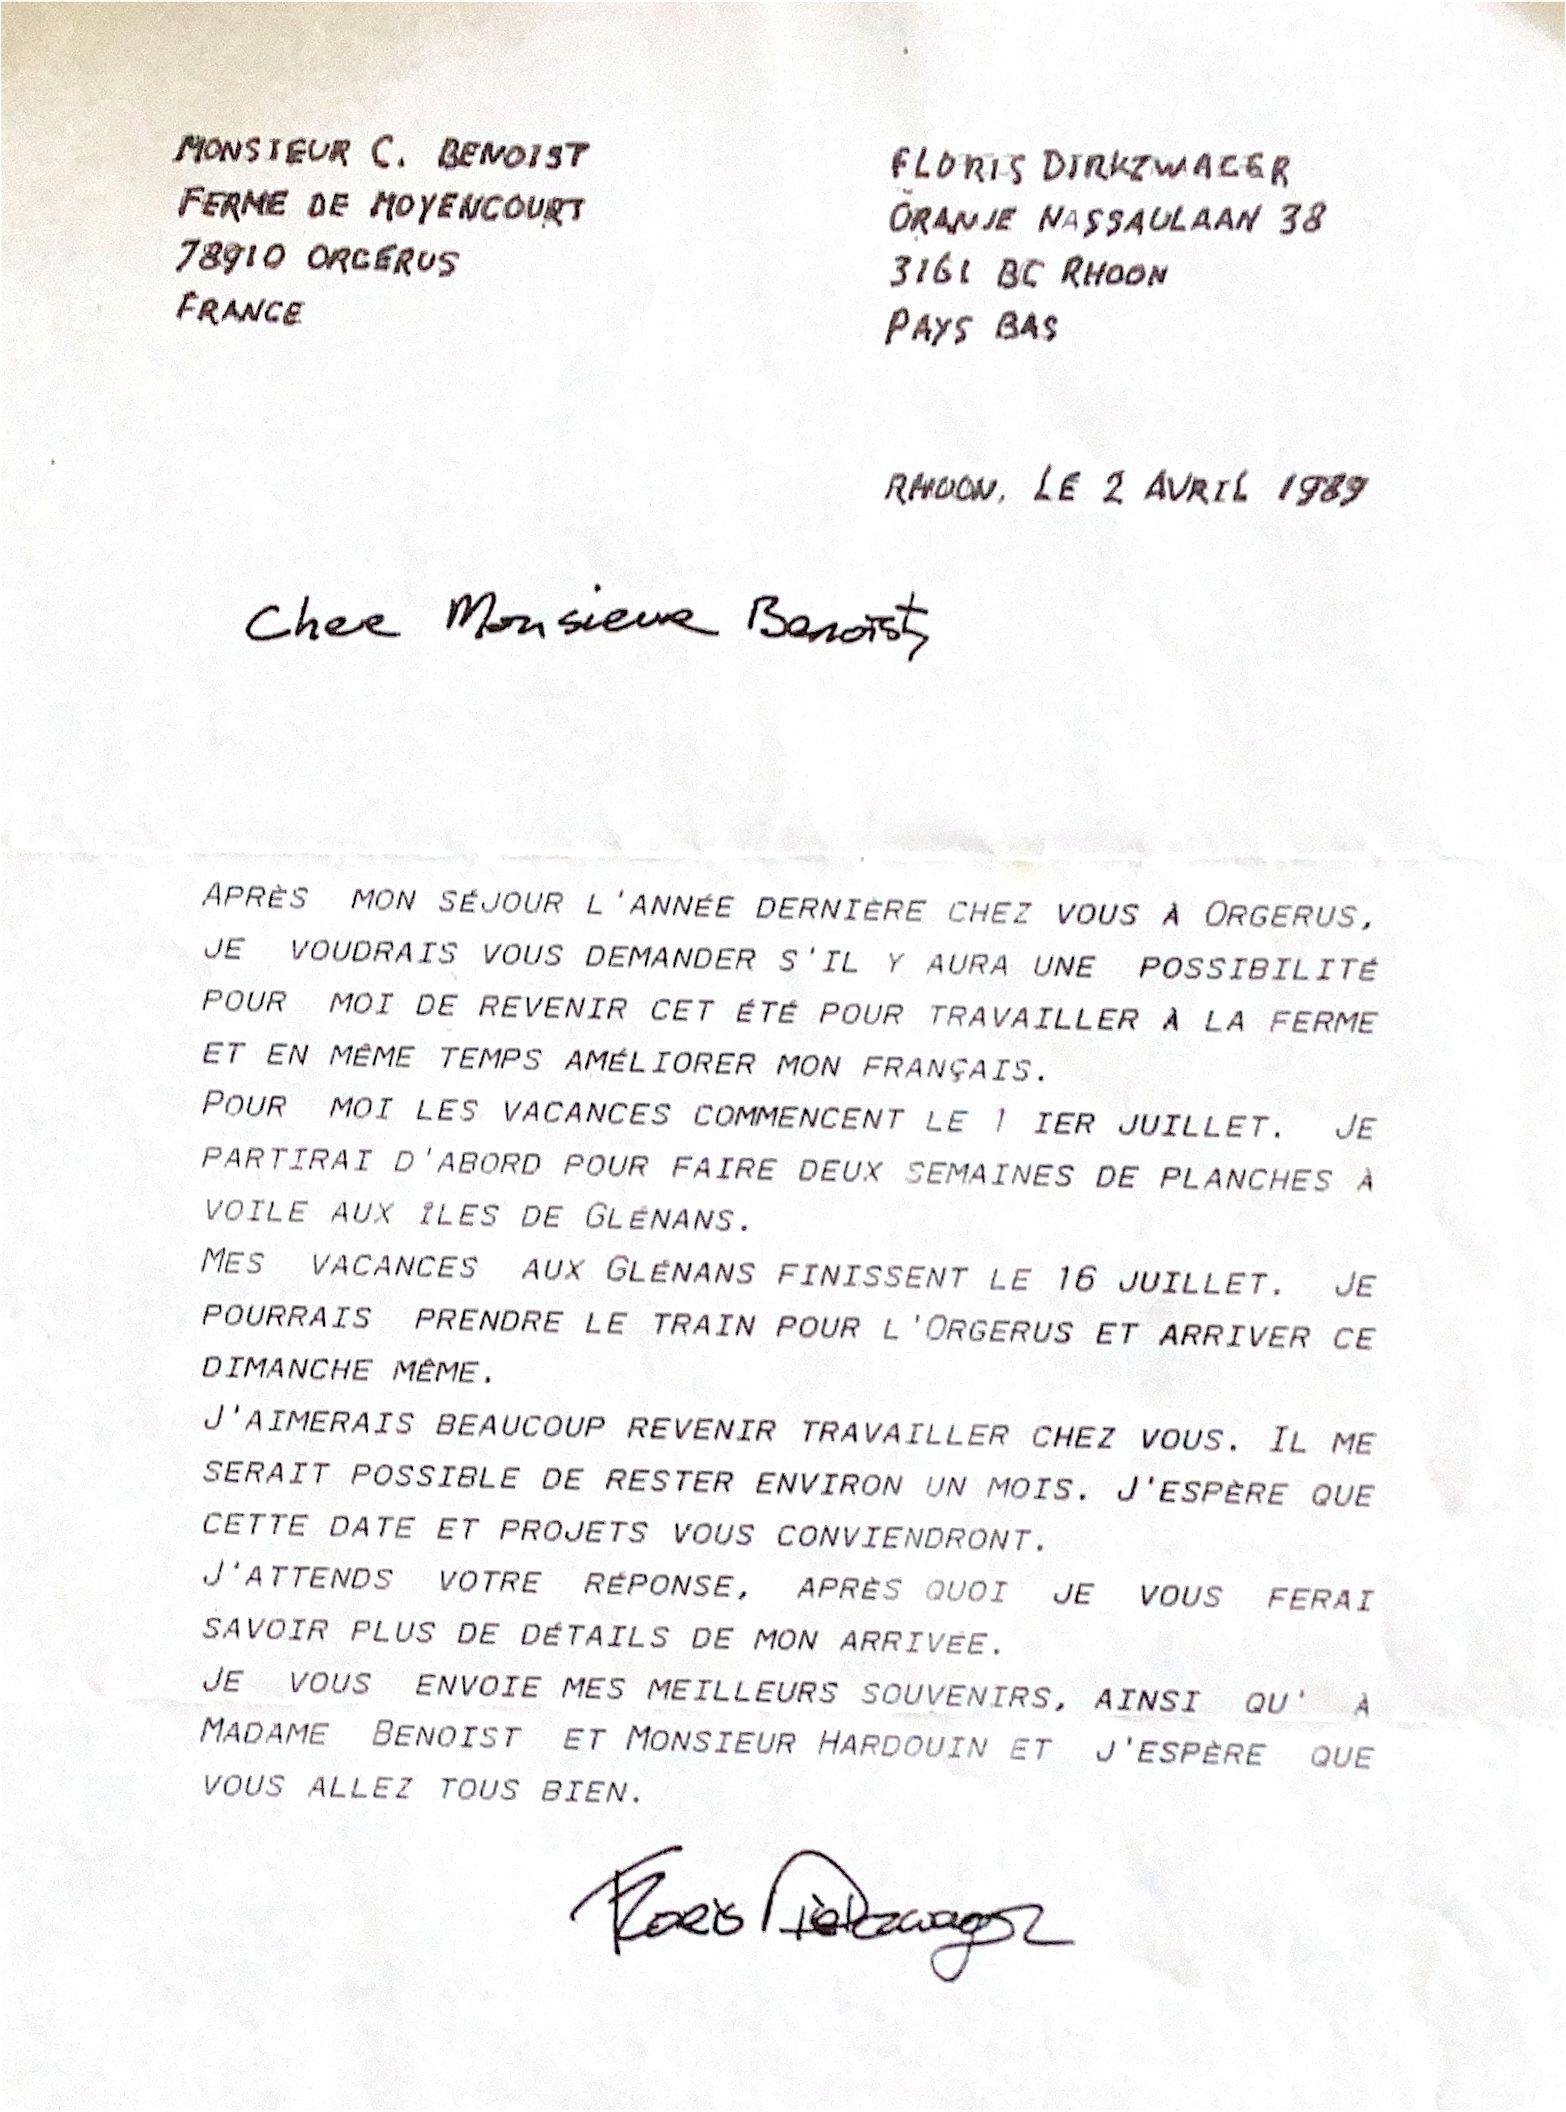 MONSIEUR C. BENOIST
FERME DE MOYENCOURT
78910 ORGERUS
FRANCE
FLORIS DIRKZWAGER
ORANJE NASSAULAAN 38
3161 BC RHOON
PAYS BAS
RHOON, LE 2 AVRIL 1989
Cher Monsieur Benoist,
APRÈS MON SÉJOUR L'ANNÉE DERNIÈRE CHEZ VOUS À ORGERUS,
JE VOUDRAIS VOUS DEMANDER S'IL Y AURA UNE POSSIBILITÉ
POUR MOI DE REVENIR CET ÉTÉ POUR TRAVAILLER À LA FERME
ET EN MÊME TEMPS AMÉLIORER MON FRANÇAIS.
POUR MOI LES VACANCES COMMENCENT LE 1 IER JUILLET. JE
PARTIRAI D'ABORD POUR FAIRE DEUX SEMAINES DE PLANCHES À
VOILE AUX ÎLES DE GLÉNANS.
MES VACANCES AUX GLÉNANS FINISSENT LE 16 JUILLET. JE
POURRAIS PRENDRE LE TRAIN POUR L'ORGERUS ET ARRIVER CE
DIMANCHE MÊME.
J'AIMERAIS BEAUCOUP REVENIR TRAVAILLER CHEZ VOUS. IL ME
SERAIT POSSIBLE DE RESTER ENVIRON UN MOIS. J'ESPÈRE QUE
CETTE DATE ET PROJETS VOUS CONVIENDRONT.
J'ATTENDS VOTRE RÉPONSE, APRÈS QUOI JE VOUS FERAI
SAVOIR PLUS DE DÉTAILS DE MON ARRIVÉE.
JE VOUS ENVOIE MES MEILLEURS SOUVENIRS, AINSI QU' À
MADAME BENOIST ET MONSIEUR HARDOUIN ET J'ESPÈRE QUE
VOUS ALLEZ TOUS BIEN.
Floris Dirkzwager